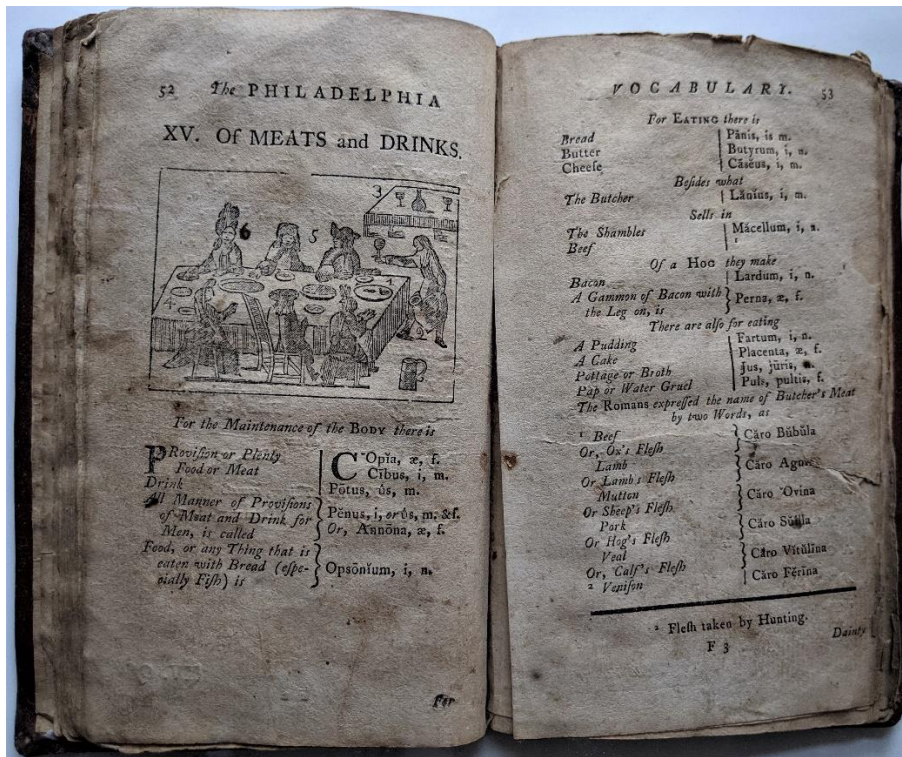 52 The PHILADELPHIA
XV. Of MEATS and DRINKS.
3
6 5
4
4
1
2
For the Maintenance of the BODY there is
PRoviſion or Plenty | COpĭa, æ, f.
Food or Meat | Cĭbus, i, m.
Drink | Pōtus, ûs, m.
All Manner of Proviſions
of Meat and Drink for } Pĕnus, i, or ûs, m. &f.
Men, is called } Or, Annōna, æ, f.
Food, or any Thing that is
eaten with Bread (eſpe- } Opsōnĭum, i, n.
cially Fiſh) is
For
VOCABULARY. 53
For EATING there is
Bread | Pānis, is m.
Butter | Butyrum, i, n.
Cheeſe | Cāsĕus, i, m.
Beſides what
The Butcher | Lănĭus, i, m.
Sells in
The Shambles | Măcellum, i, n.
Beef
Of a HOG they make
Bacon | Lardum, i, n.
A Gammon of Bacon with } Perna, æ, f.
the Leg on, is
There are alſo for eating
A Pudding | Fartum, i, n.
A Cake | Placenta, æ, f.
Pottage or Broth | Jus, jūris, n.
Pap or Water Gruel | Puls, pultis, f.
The Romans expreſſed the name of Butcher's Meat
by two Words, as
¹ Beef } Căro Būbŭla
Or, Ox's Fleſh
Lamb } Căro
Or Lamb's Fleſh
Mutton } Căro Ovina
Or Sheep's Fleſh
Pork } Căro
Or Hog's Fleſh
Veal } Căro Vĭtŭlīna
Or, Calf's Fleſh
² Veniſon | Căro Fĕrīna
² Fleſh taken by Hunting.
F 3 Dainty